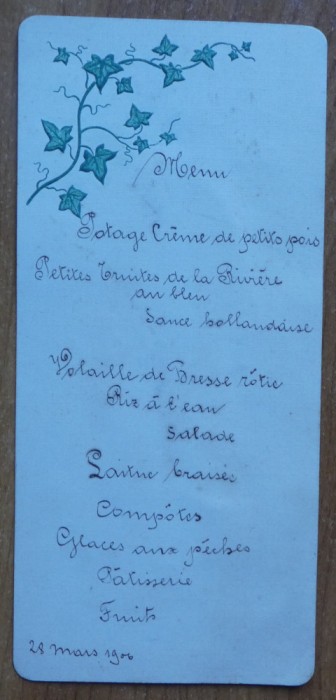 Menu
Potage Crème de petits pois
Petites Truites de la Rivière
au bleu
Sauce hollandaise
Volaille de Bresse rôtie
Riz à l'eau
Salade
Laitue braisés
Compôtes
Glaces aux pêches
Pâtisserie
Fruits
28 Mars 1906